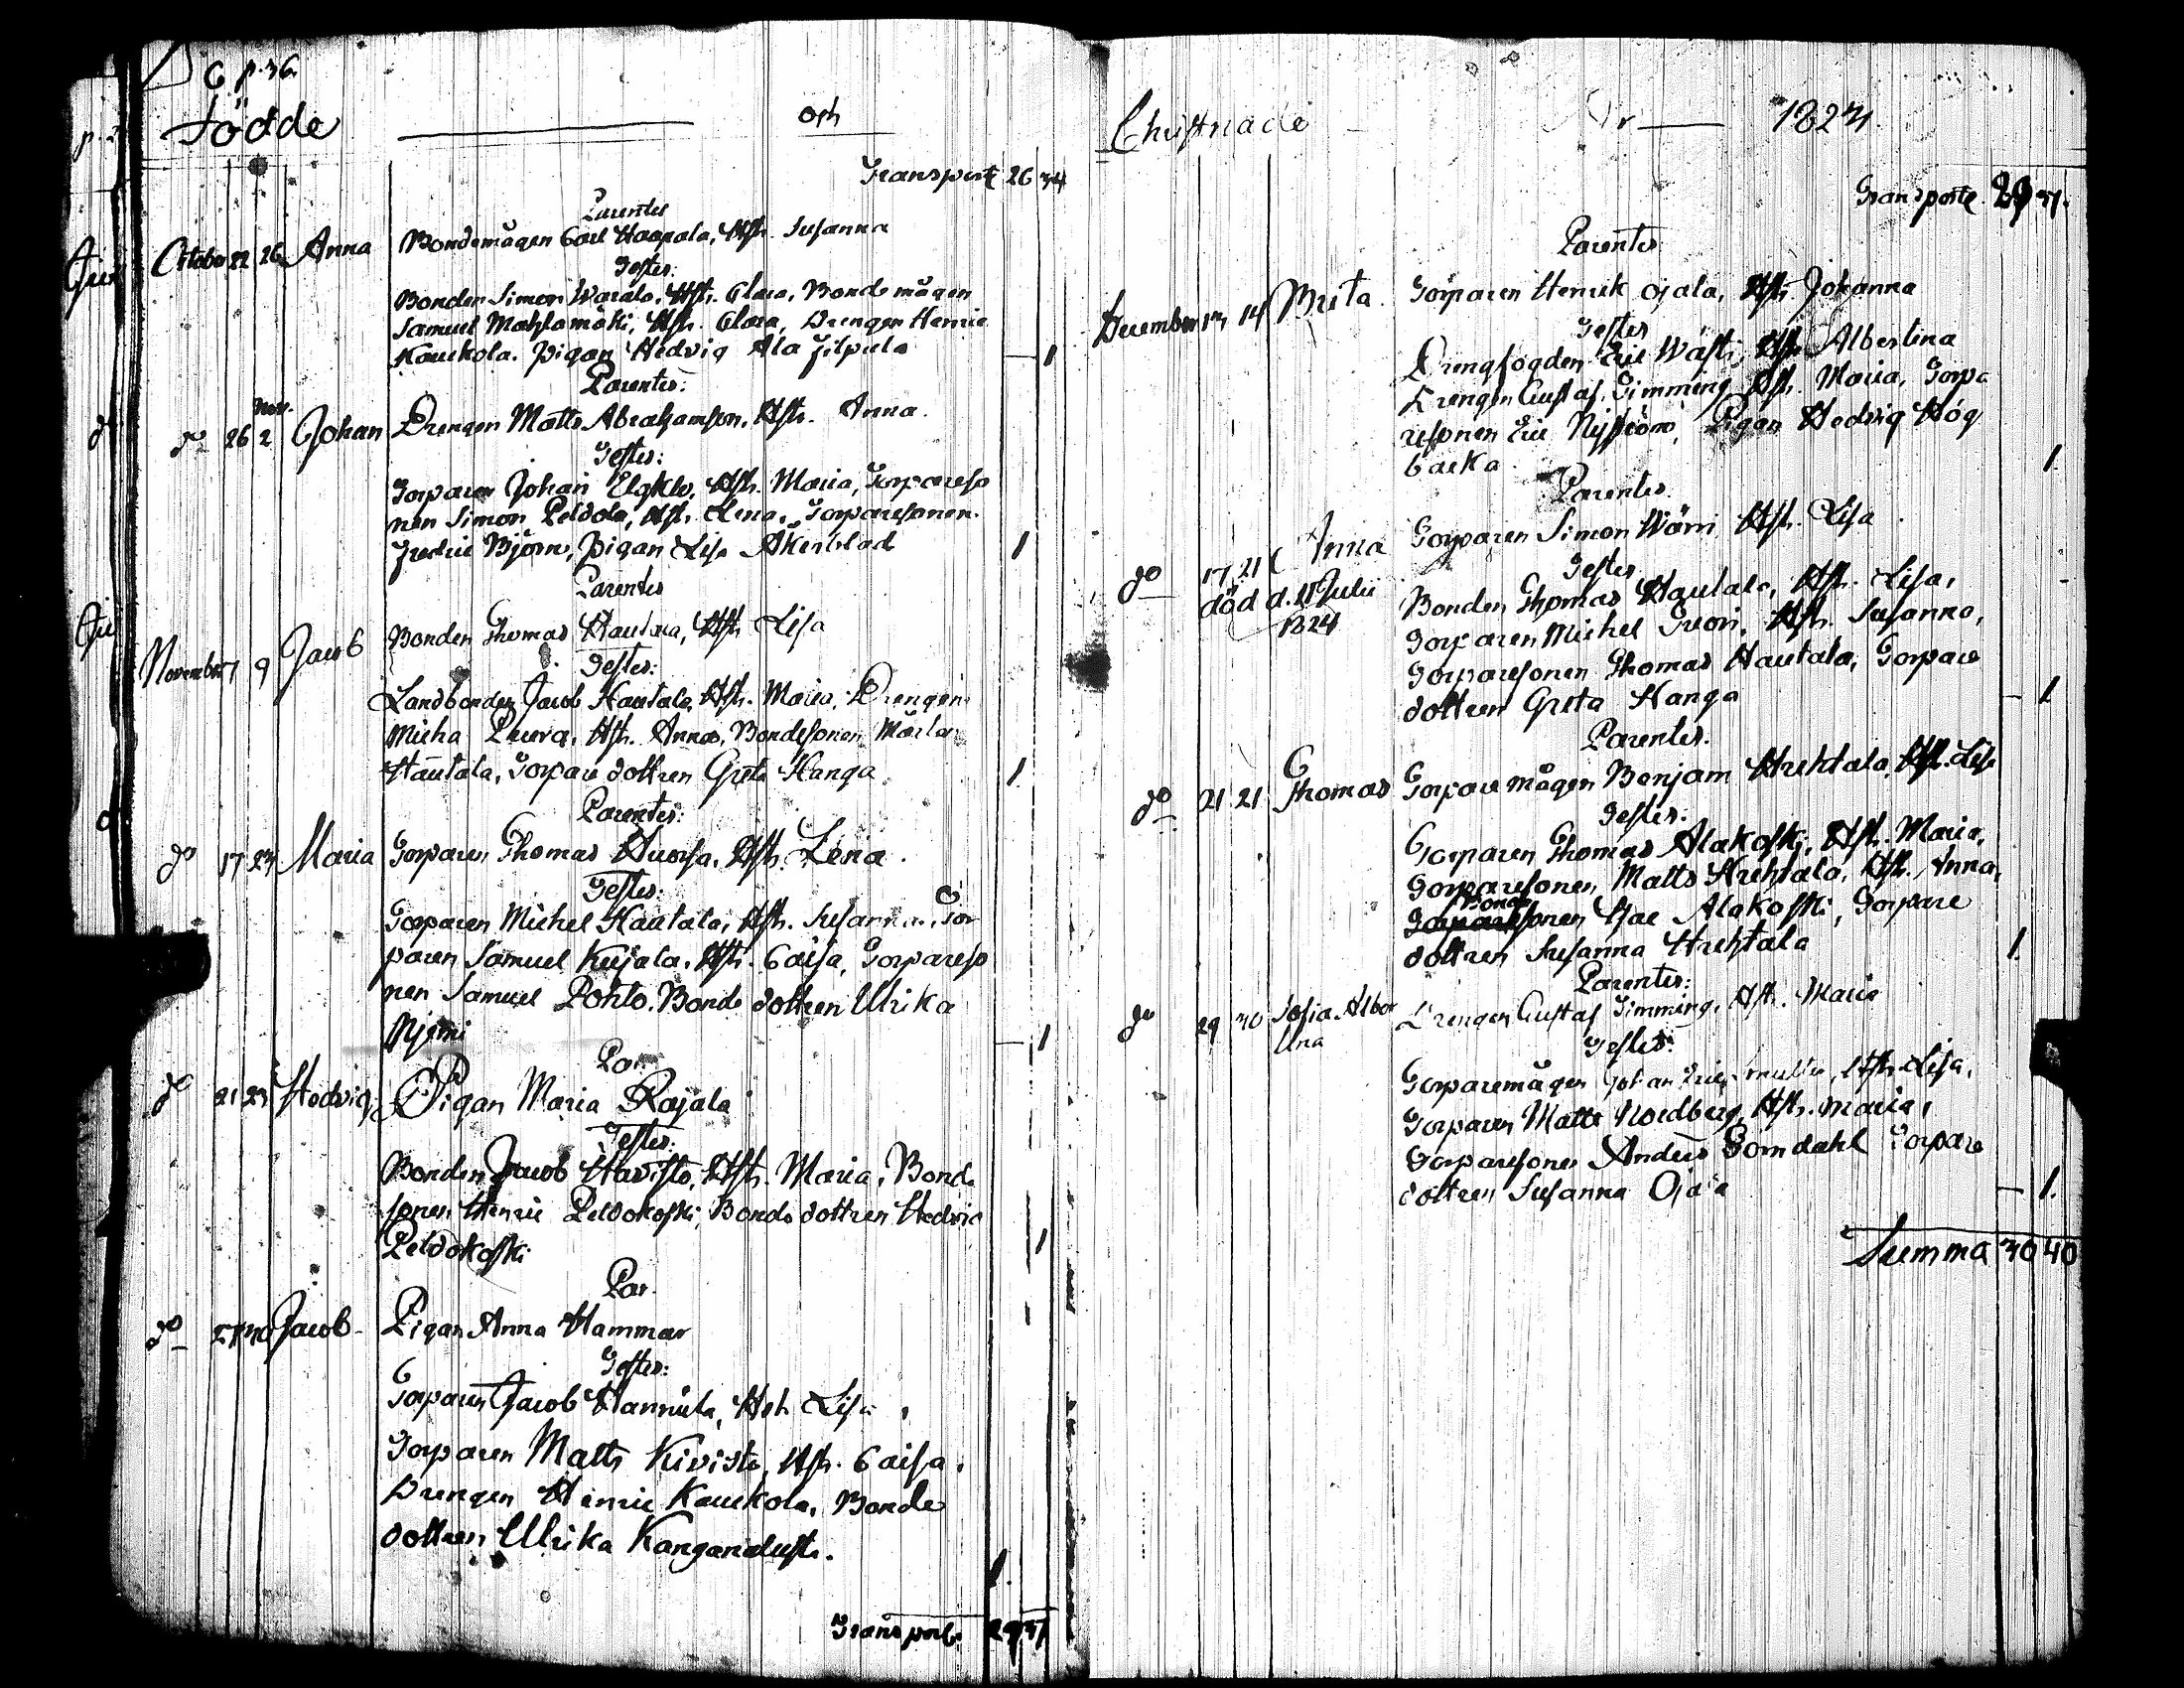 C p. 36.
Födde och
Transport 26 34
Parentes
October 22 26 Anna Bondemågen Carl Haapala, Hstr. Susanna
Testes:
Bonden Simon Warala, Hstr. Clara, Bonde mågen
Samuel Mahlamäki, Hstr. Clara, Drengen Henric
Kaukola. Pigan Hedvig Ala Filpula 1
Parentes:
Nov.
do 26 2 Johan Drengen Matts Abrahamsson, Hstr. Anna.
Testes:
Torparen Johan Elgklo, Hstr. Maria, Torpareso
nen Simon Peldola, Hstr. Lena, Torparesonen
Fredric Björn, Pigan Lisa Åkerblad 1
Parentes
November 7 9 Jacob Bonden Thomas Hautala, Hstr. Lisa
Testes:
Landbonden Jacob Hautala, Hstr. Maria, Drengen
Micha Luova, Hstr. Anna, Bondesonen
Hautala, Torpare dottren Greta Hanga 1.
Parentes:
do 17 23 Maria Torparen Thomas Huorsa, Hstr. Lena.
Testes:
Torparen Michel Hautala, Hstr. Susanna, Tor
paren Samuel Kujala, Hstr. Caisa, Torpareso
nen Samuel Pohto. Bonde dottren Ulrika
Njemi 1
Par.
do 21 23 Hedvig Pigan Maria Rajala
Testes:
Bonden Jacob Havisto, Hstr. Maria, Bonde
sonen Henric Peldokoski, Bonde dottren Hedvig
Peldokoski 1
Par.
do 27 30 Jacob Pigan Anna Hammar
Testes:
Torparen Jacob Hannula, Hstr Lisa,
Torparen Matts Kivisto, Hstr. Caisa,
Drengen Henric Kaukola, Bonde
dottren Ulrika Kanganalusta.
1.
Transport. 29 37
Christnade År 1823
Transport 29 37.
Parentes
December 13 14 Brita Torparen Henrik Ojala, Hstr. Johanna
Testes
Drengfogden Eric Wästi, Hstr Albertina
Drengen Gustaf Timming Hstr. Maria, Torpa
resonen Eric Nyström, Pigan Hedvig Hög
backa 1
Parentes.
do 17 21 Anna Torparen Simon Wärri Hstr. Lisa
död d. 18 Julii
1824
Testes
Bonden Thomas Hautala, Hstr. Lisa,
Torparen Michel Luori, Hstr. Susanna,
Torparesonen Thomas Hautala, Torpare
dottren Greta Hanga 1
Parentes.
do 21 21 Thomas Torpare mågen Benjam Huhtala, Hstr. Lisa
Testes:
Torparen Thomas Alakoski, Hstr. Maria,
Torparesonen Matts Huhtala, Hstr. Anna,
Bonde
Torparesonen Isac Alakoski, Torpare
dottren Susanna Huhtala 1.
Parentes:
do 29 30 Sofia Alber
tina Drengen Gustaf Timming, Hstr. Maria
Testes:
Torparemågen Johan Hstr. Lisa,
Torparen Matts Nordberg, Hstr. Maria,
Torparesonen Anders Törndahl Torpare
dottren Susanna Ojala 1.
Summa 30 40